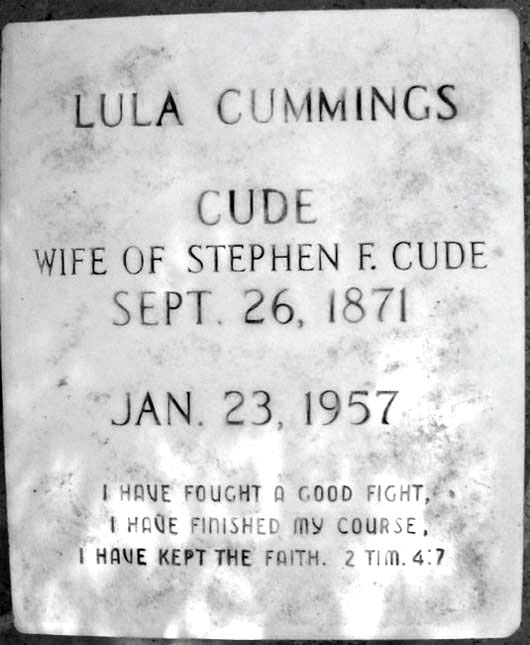 LULA CUMMINGS
CUDE
WIFE OF STEPHEN F. CUDE
SEPT. 26, 1871
JAN. 23, 1957
I HAVE FOUGHT A GOOD FIGHT,
I HAVE FINISHED MY COURSE,
I HAVE KEPT THE FAITH. 2 TIM. 4:7